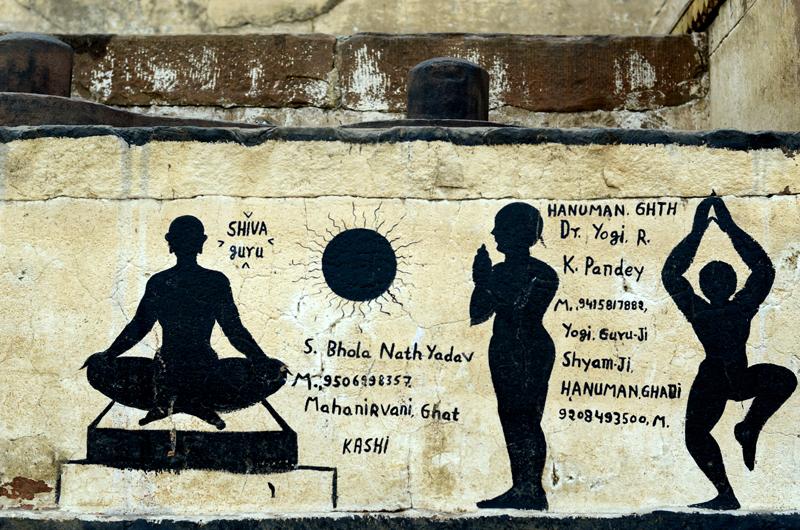 SHIVA
guru
S. Bhola Nath Yadav
M.,9506998357,
Mahanirvani, Ghat
KASHI
HANUMAN. GHTH
Dr. Yogi. R.
K. Pandey
M., 9415817882,
Yogi. Guru-Ji
Shyam-Ji,
HANUMAN,GHADi
9208493500, M.